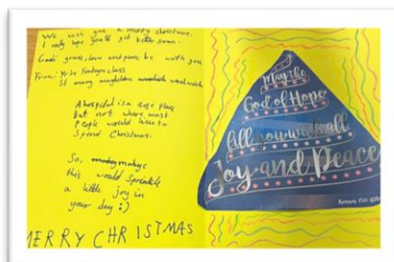 We wish you a merry christmas.
I really hope you'll get better soon.
God's grace, love and peace be with you
From: Yr 5/6 class
St mary magdalene woolwich
A hospital is a safe place
But not where most
People would like to
Spend Christmas.
So, maybe
this would sprinkle
a little joy in
your day :)
MERRY CHRISTMAS
May the
God of Hope
fill you with all
Joy and Peace
Romans